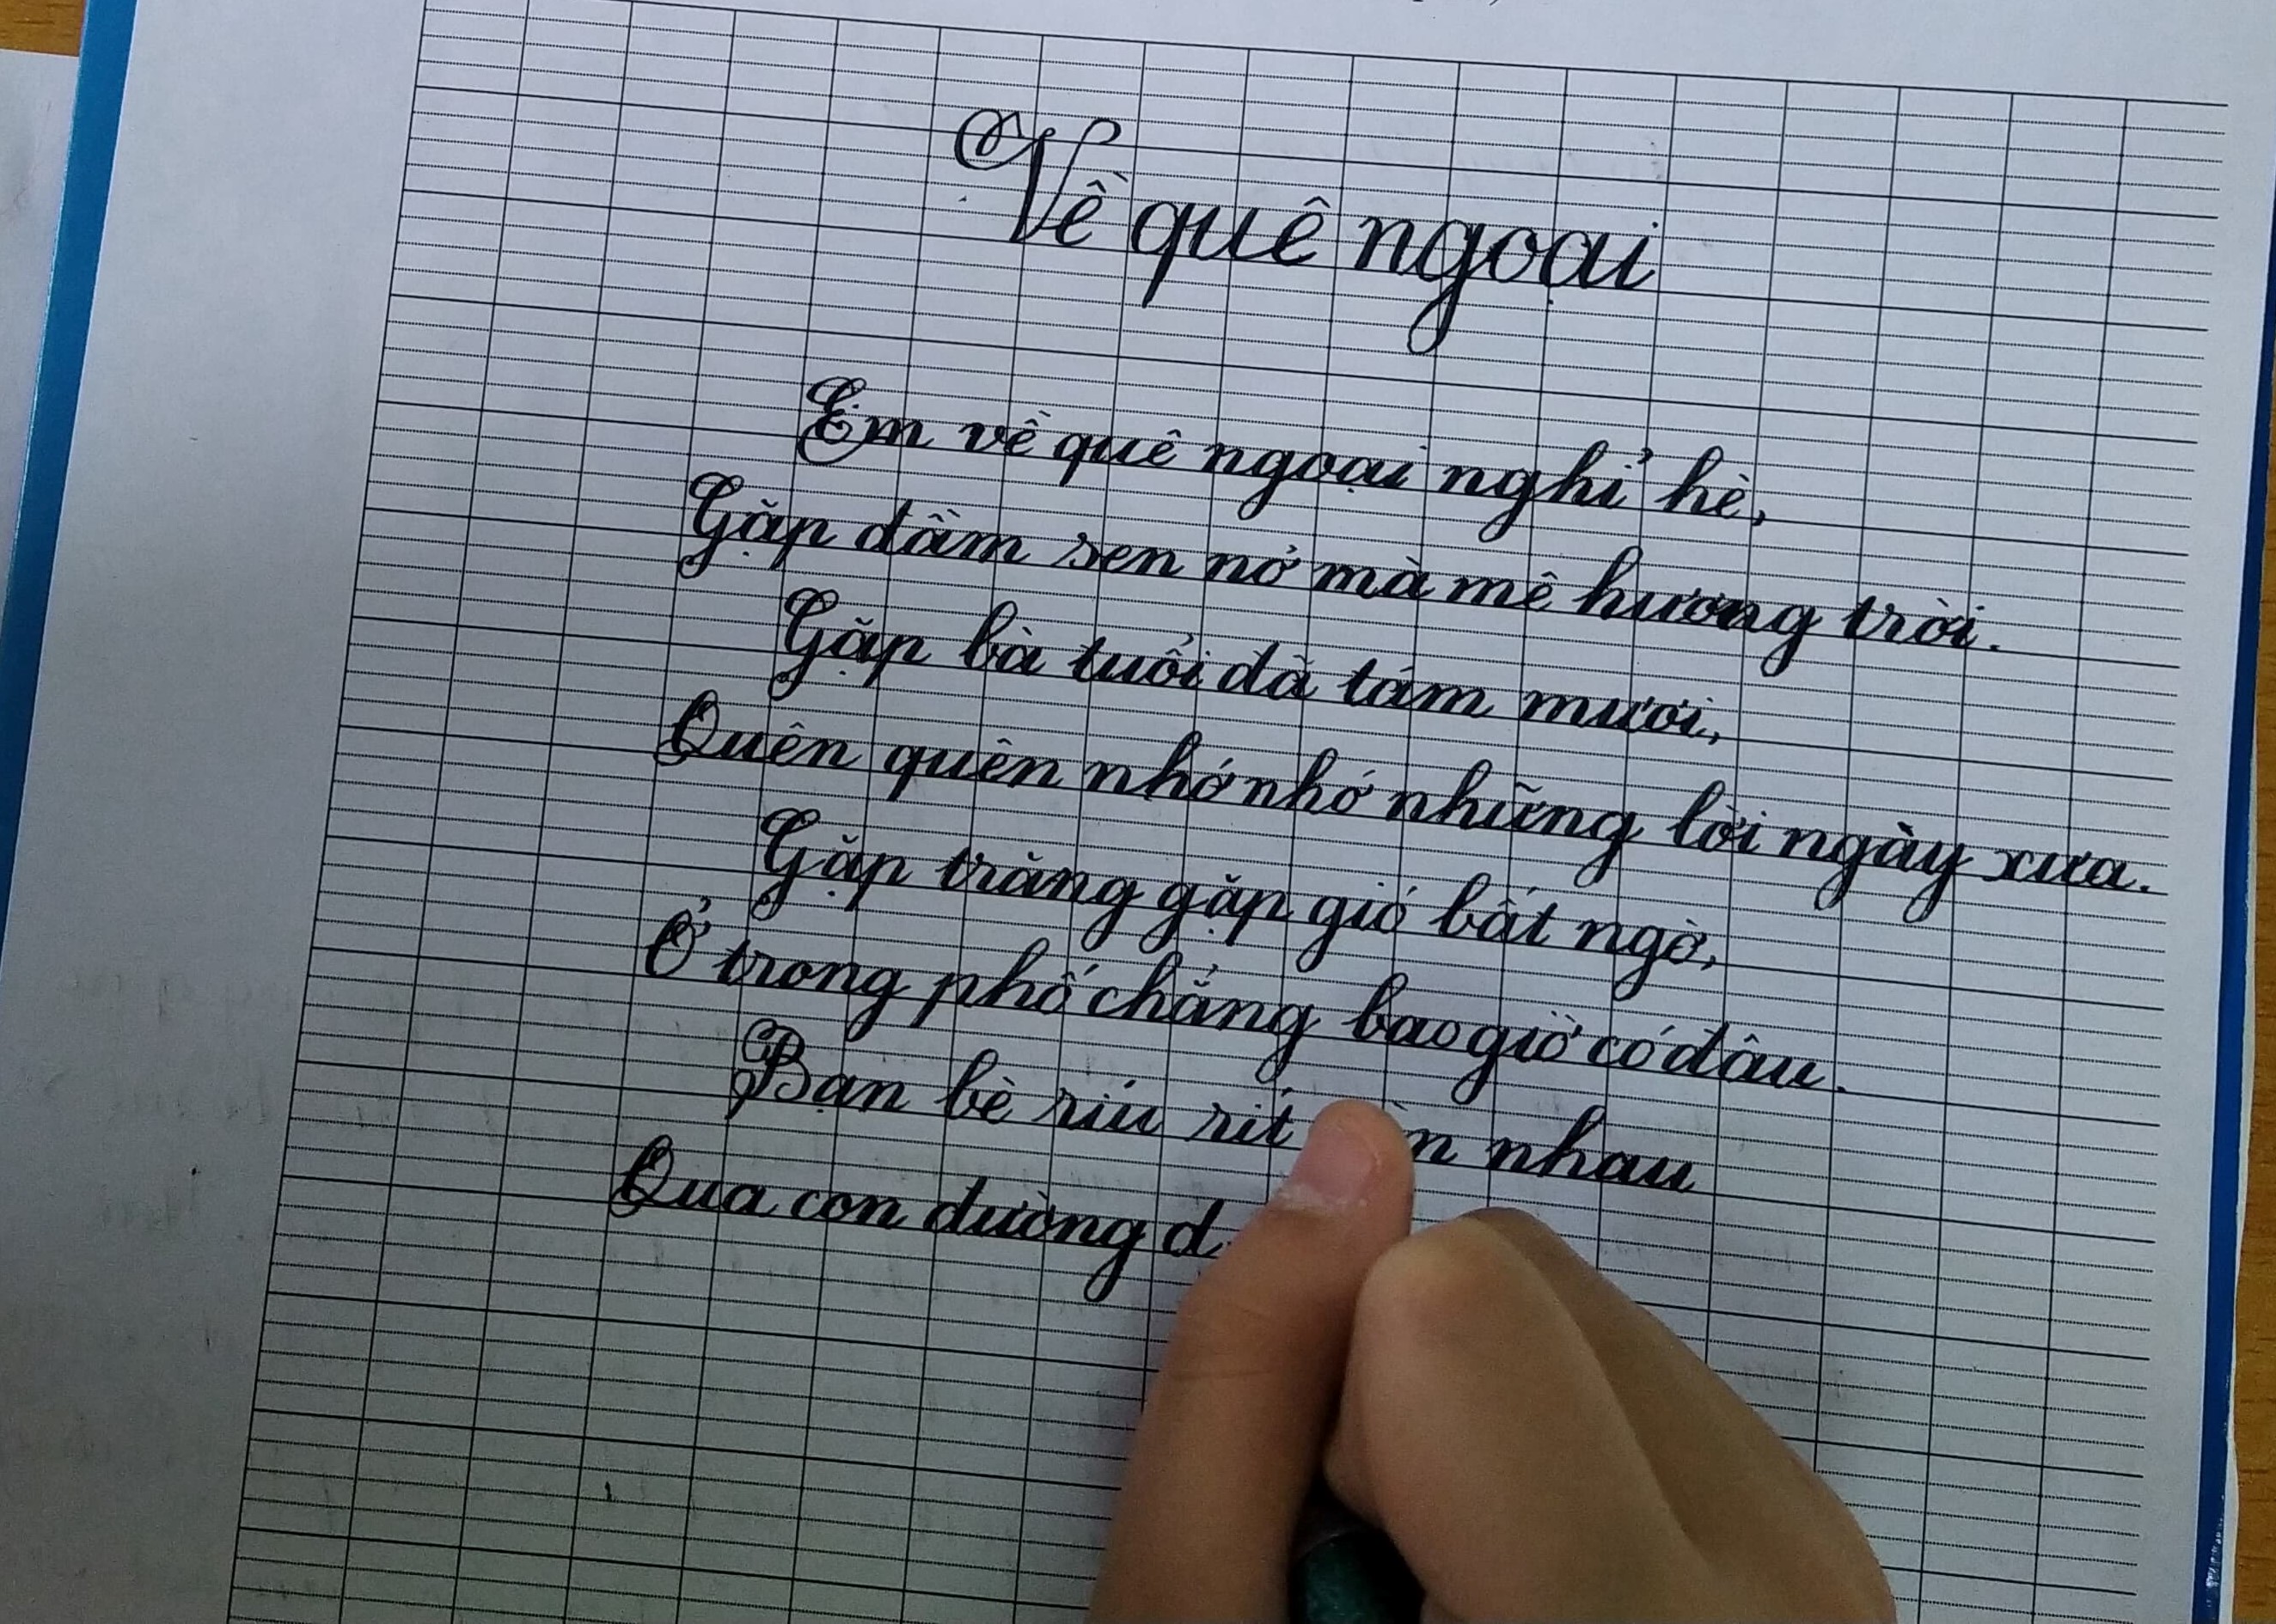 Về quê ngoại
Em về quê ngoại nghỉ hè,
Gặp đầm sen nở mà mê hương trời.
Gặp bà tuổi đã tám mươi,
Quên quên nhớ nhớ những lời ngày xưa.
Gặp trăng gặp gió bất ngờ,
Ở trong phố chẳng bao giờ có đâu.
Bạn bè ríu rít nhau
Qua con đường